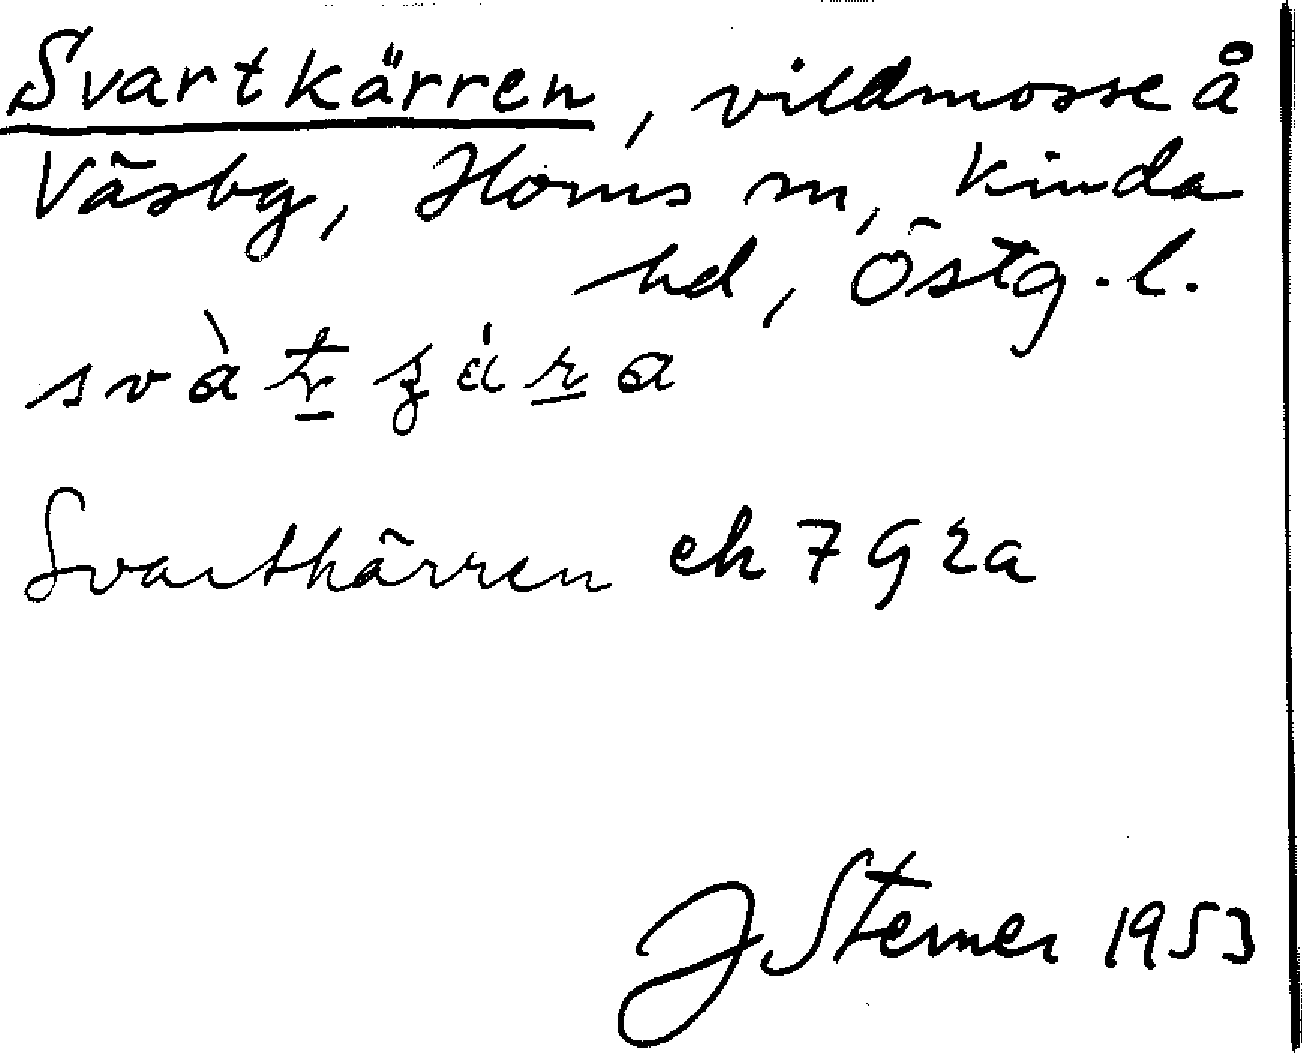 Svartkärren, vildmosse å
Väsby, Horns sn, Kinda
hd, Östg.l.
Svartkärren ek 7 G 2a
J Sterner 1953